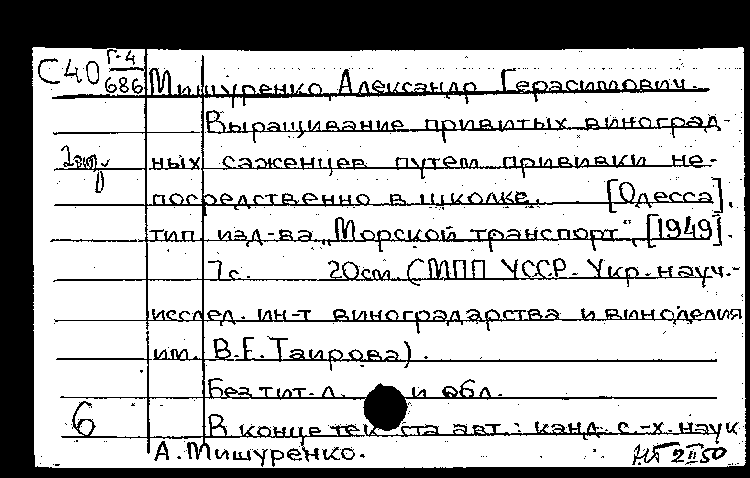 С40 Г-4
686 Мишуренко, Александр Герасимович.
Выращивание привитых виноград-
2 экз. ных саженцев путем прививки не-
посредственно в школке. [Одесса],
тип. изд-ва „Морской транспорт", [1949].
7 с. 20 см. (МПП УССР. Укр. науч.-
исслед. ин-т виноградарства и виноделия
им. В.Е. Таирова).
Без тит. л. и обл.
6 В конце текста авт.: канд. с.-х. наук
А. Мишуренко. 2 II 50